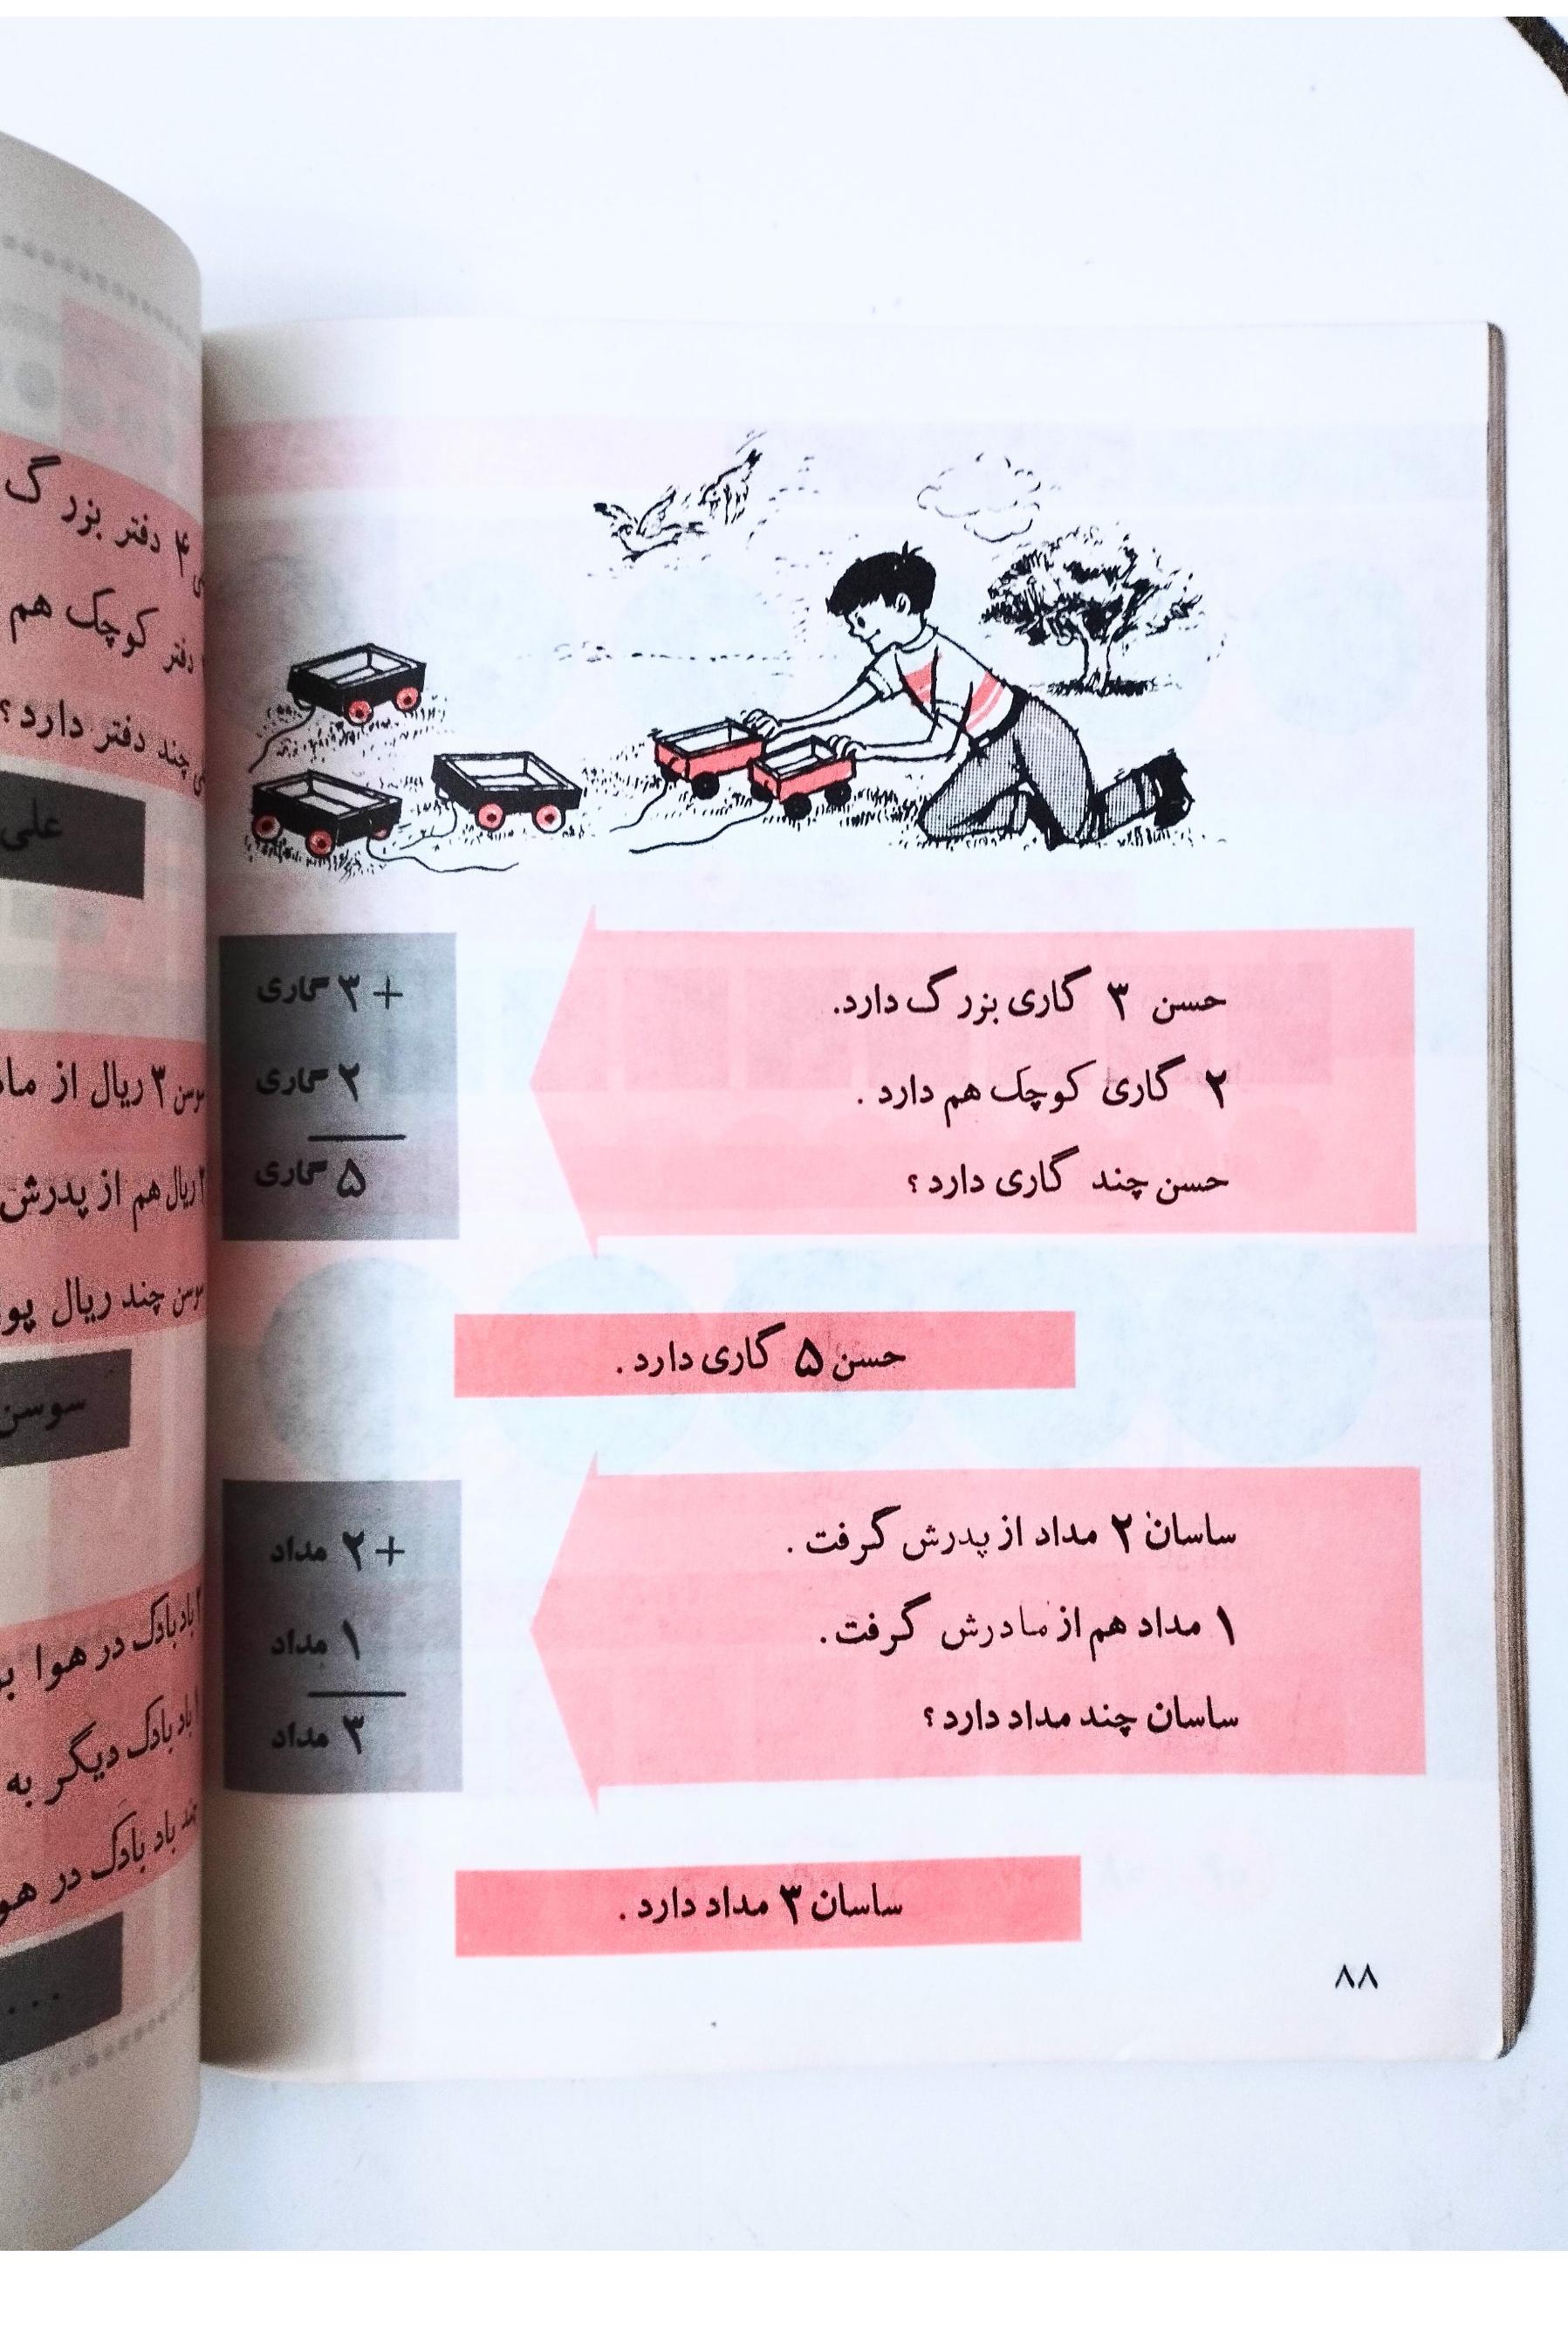 حسن ۳ گاری بزرگ دارد.
۲ گاری کوچک هم دارد .
حسن چند گاری دارد ؟
+ ۳ گاری
۲ گاری
۵ گاری
حسن ۵ گاری دارد .
ساسان ۲ مداد از پدرش گرفت .
۱ مداد هم از مادرش گرفت .
ساسان چند مداد دارد ؟
+ ۲ مداد
۱ مداد
۳ مداد
ساسان ۳ مداد دارد .
۸۸
۴ دفتر بزرگ
دفتر کوچک هم
چند دفتر دارد ؟
علی
سوسن ۳ ریال از
ریال هم از پدرش
سوسن چند ریال
سوسن
باد بادک در هوا
باد بادک دیگر به
چند باد بادک در
...